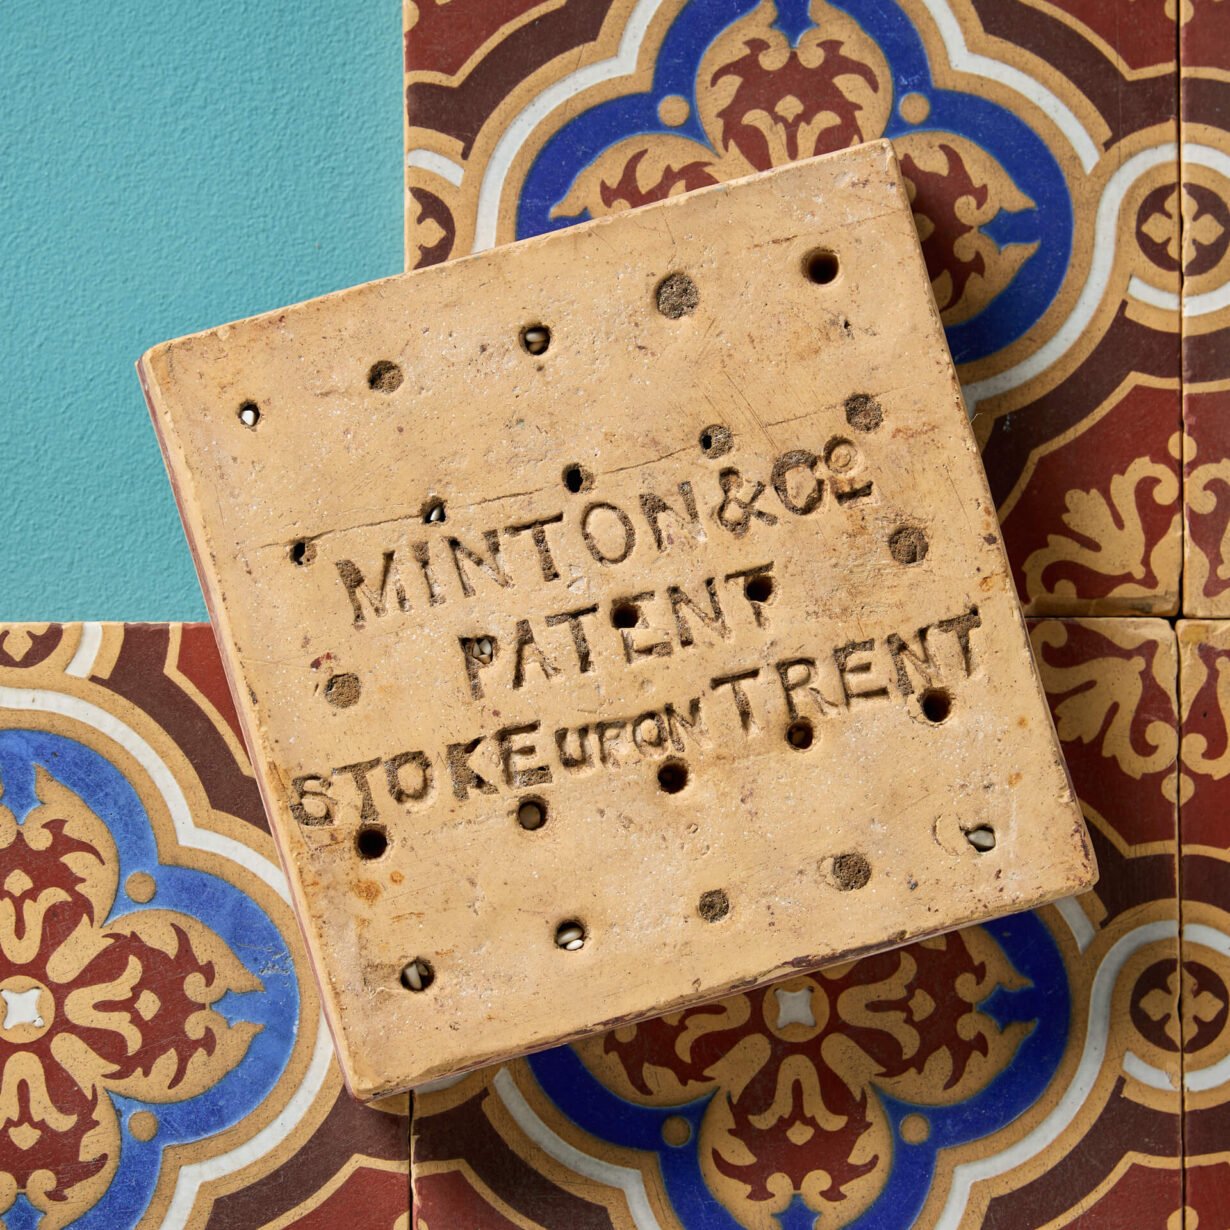 MINTON & Co
PATENT
STOKE UPON TRENT